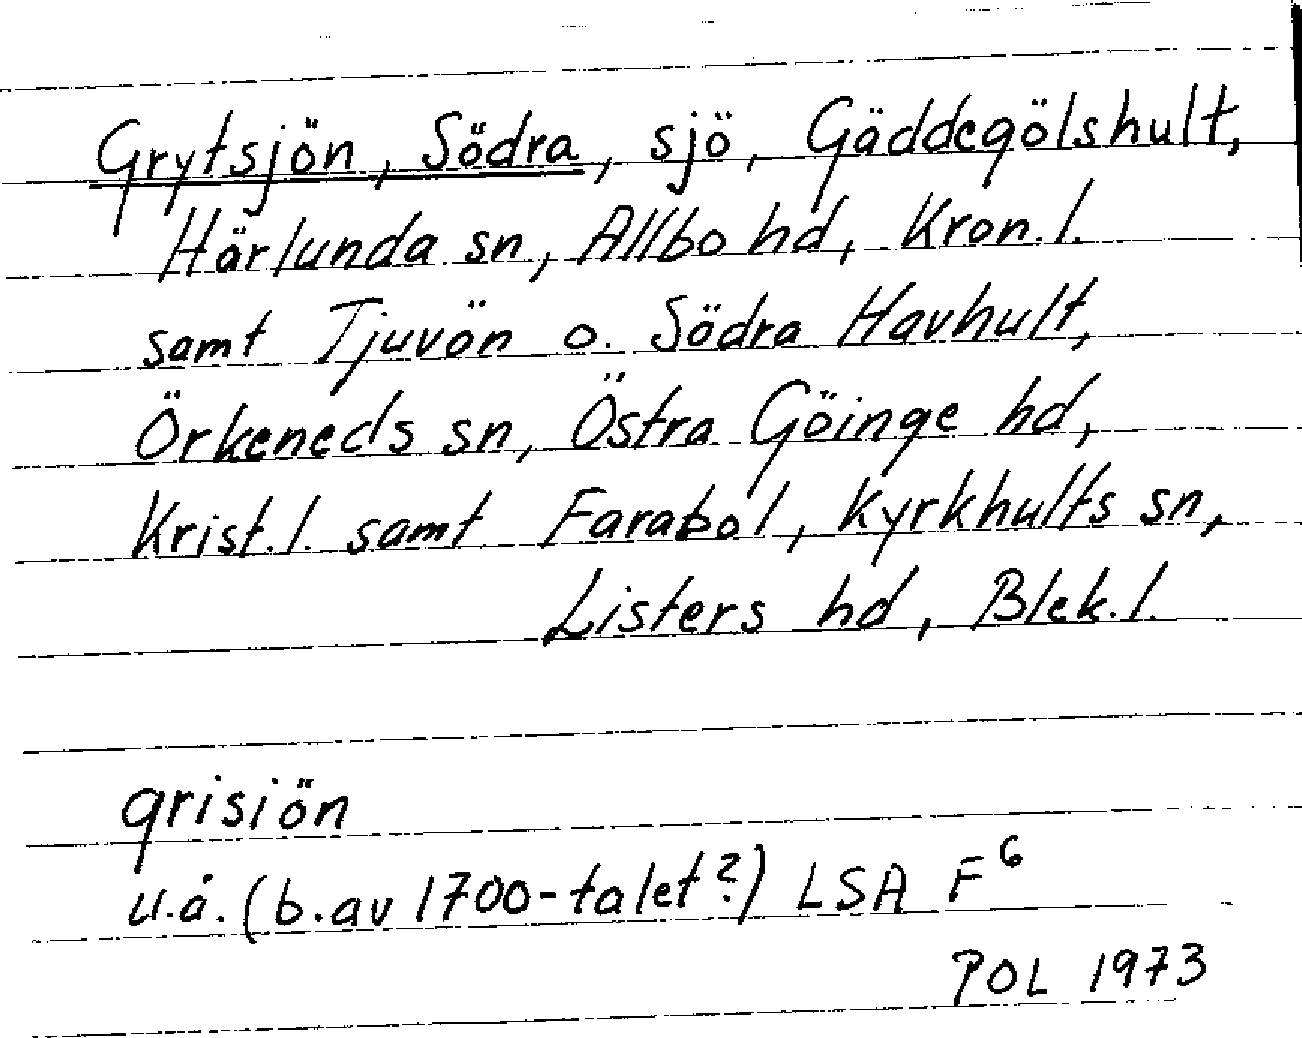 Grytsjön, Södra, sjö, Gäddegölshult,
Härlunda sn, Allbo hd, Kron. l.
samt Tjuvön o. Södra Havhult,
Örkeneds sn, Östra Göinge hd,
Krist. l. samt Farabol, Kyrkhults sn,
Listers hd, Blek. l.
grisiön
u.å. (b. av 1700-talet?) LSA F⁶
POL 1973